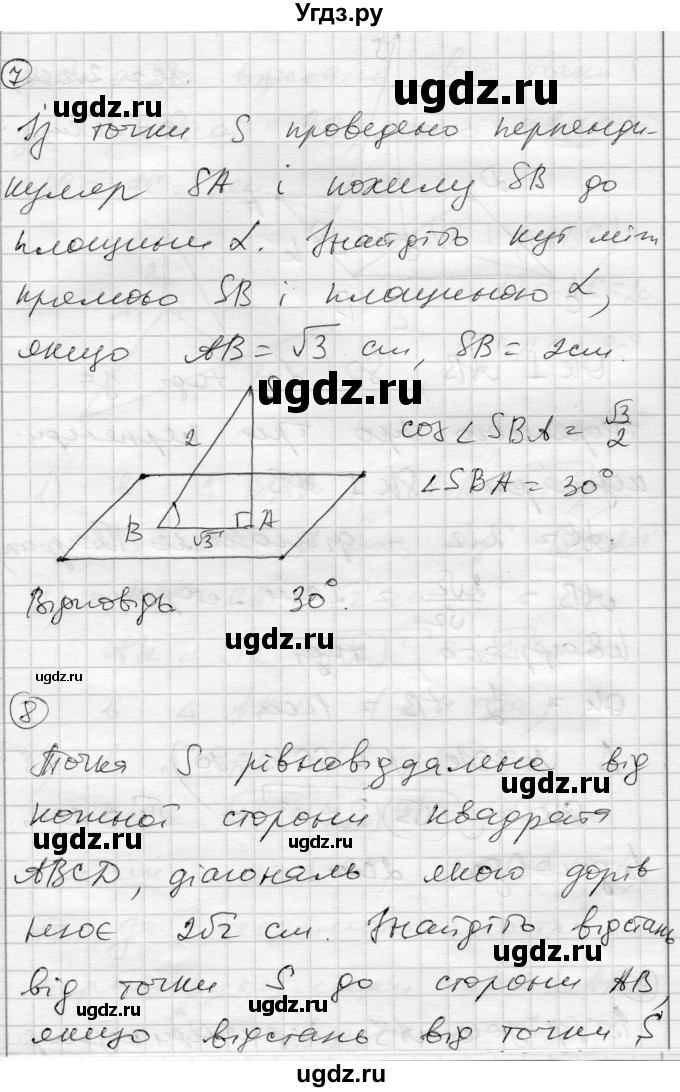 Угдз.ру
7
ugdz.ru
ugdz.ru
Iз точки S проведено перпенди-
куляр SA і похилу SB до
площини α. Знайдіть кут між
прямою SB і площиною α,
якщо AB = √3 см, SB = 2см.
ugdz.ru
2
cos∠SBA = √3/2
∠SBA = 30°
B √3 A
ugdz.ru
Відповідь 30°.
ugdz.ru
ugdz.ru
8
Точка S рівновіддалена від
ugdz.ru
кожної сторони квадрата
ugdz.ru
ABCD, діагональ якого дорів
нює 2√2 см. Знайдіть відстань
від точки S до сторони AB,
ugdz.ru
ugdz.ru
якщо відстань від точки S
ugdz.ru
ugdz.ru